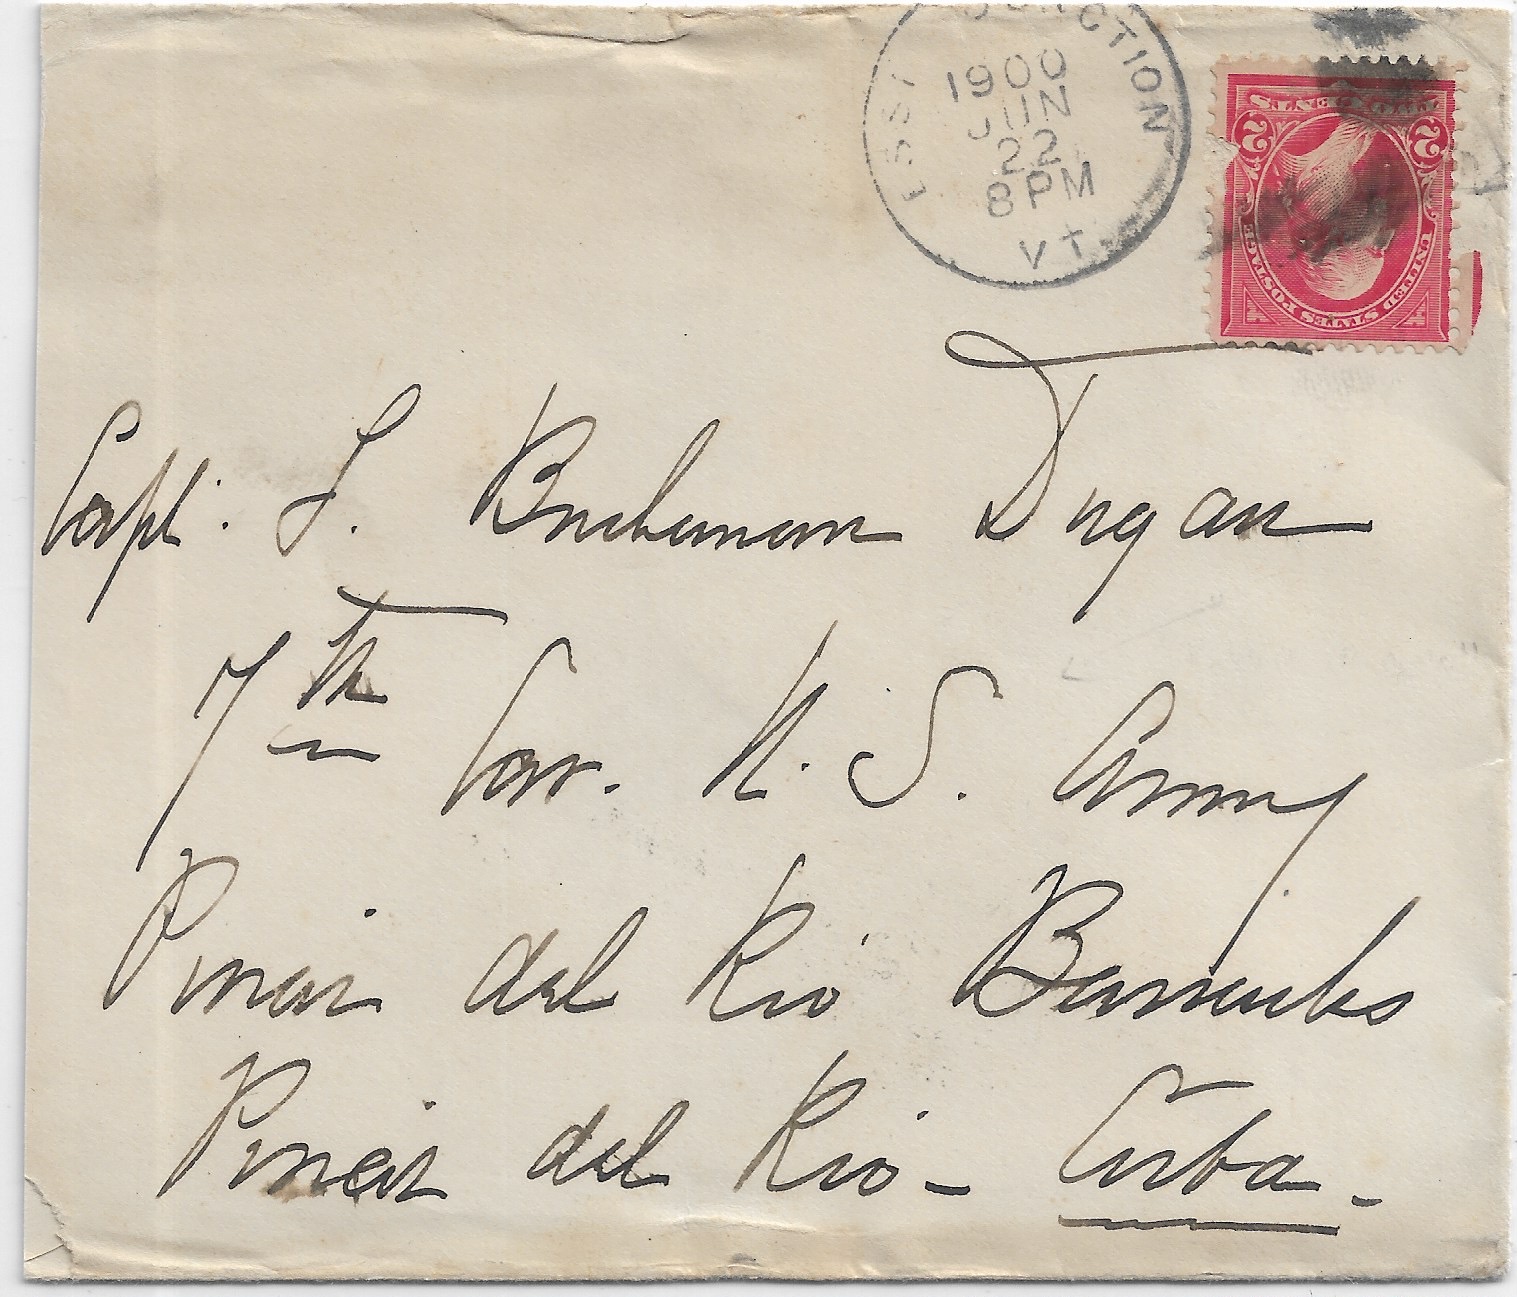 JUNCTION
1900
JUN
22
8 PM
VT
UNITED STATES POSTAGE
2 2
Capt. T. Buchanan Dugan
7th Cav. U. S. Army
Pinar del Rio Barracks
Pinar del Rio - Cuba -